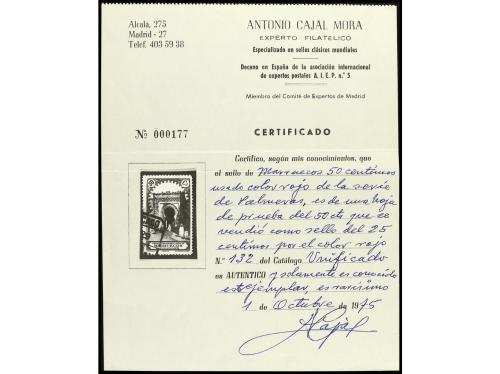 Alcalá, 275
Madrid - 27
Telef. 403 59 38
ANTONIO CAJAL MORA
EXPERTO FILATELICO
Especializado en sellos clásicos mundiales
Decano en España de la asociación internacional
de expertos postales A. I. E. P. n.º 5
Miembro del Comité de Expertos de Madrid
Nº 000177
CERTIFICADO
Certifico, según mis conocimientos, que
el sello de Marruecos 50 centimos
usado color rojo de la serie
de Palmeras, es de una hoja
de prueba del 50 cts que se
vendió como sello del 25
centimos por el color rojo
N.º 132 del Catálogo Unificado
es AUTENTICO y solamente es conocido
este ejemplar, es rarisimo
1 de Octubre de 1975
A Cajal